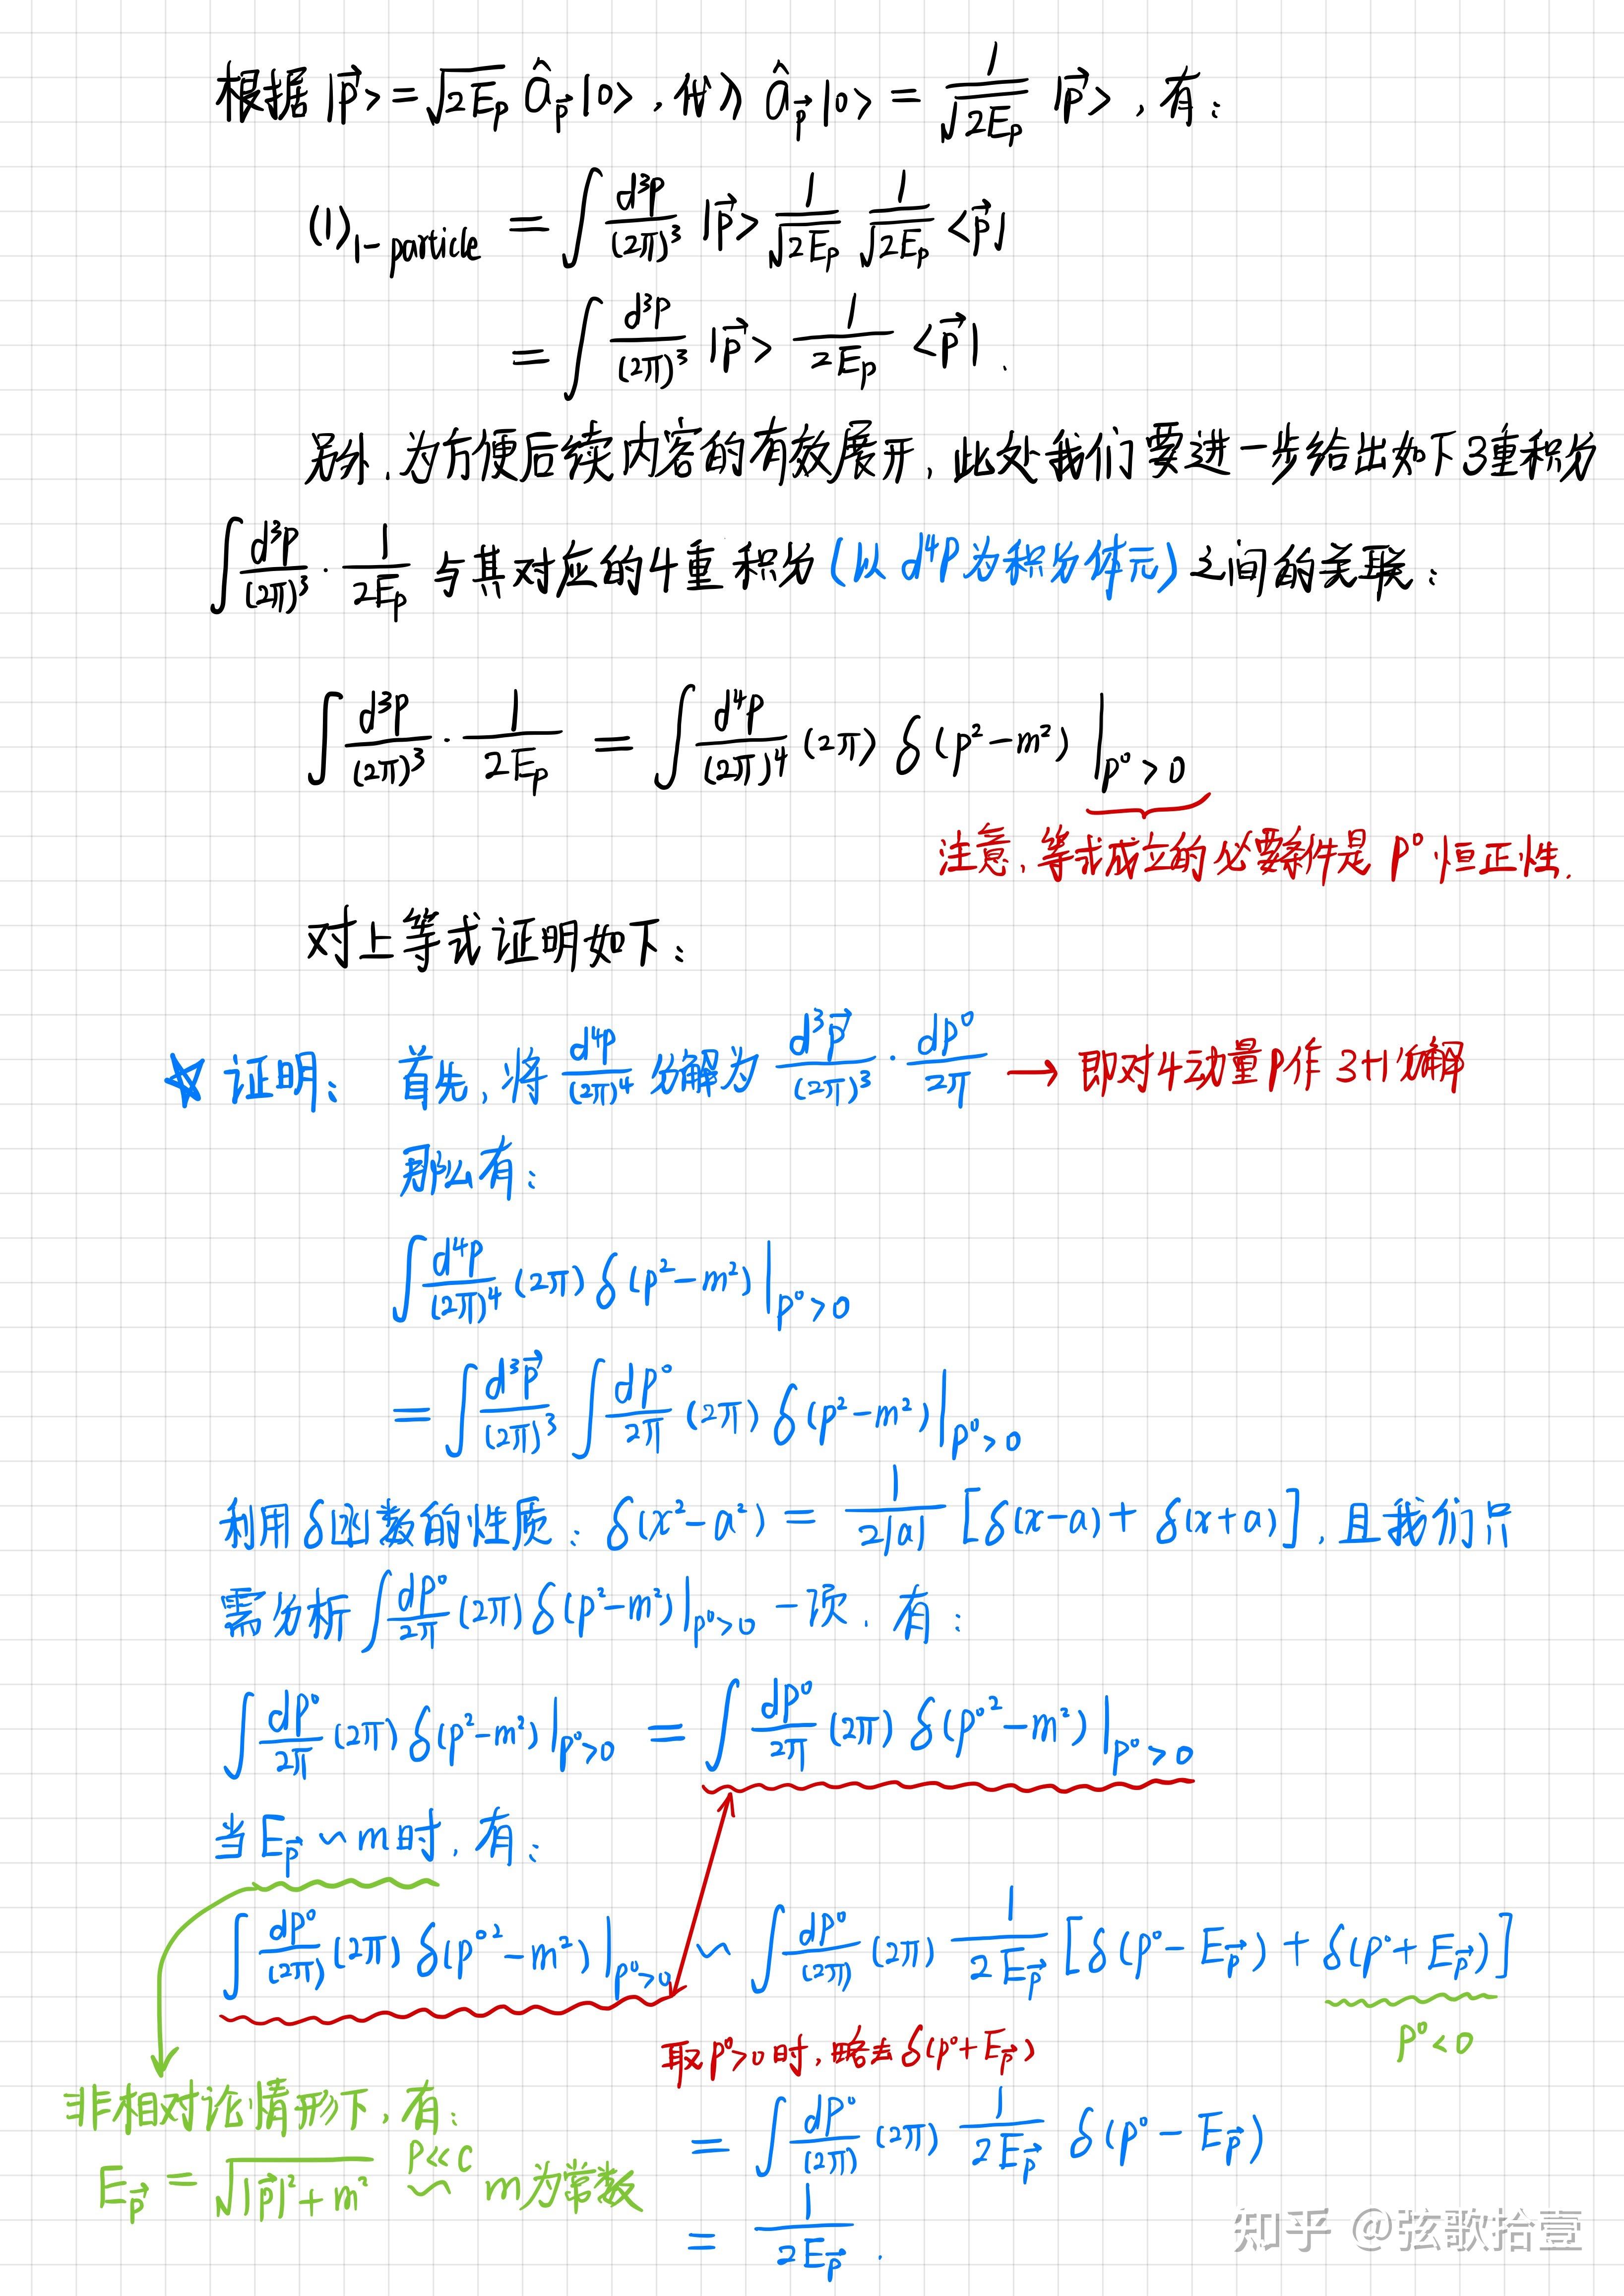 根据 |p⃗> = √(2E_p) â_p⃗ |0>,代入 â_p⃗ |0> = 1/√(2E_p) |p⃗>,有:
(1)_{1-particle} = ∫ d³p/(2π)³ |p⃗> 1/√(2E_p) 1/√(2E_p) <p⃗|
= ∫ d³p/(2π)³ |p⃗> 1/(2E_p) <p⃗| .
另外,为方便后续内容的有效展开,此处我们要进一步给出如下3重积分
∫ d³p/(2π)³ · 1/(2E_p) 与其对应的4重积分(以 d⁴p 为积分体元)之间的关联:
∫ d³p/(2π)³ · 1/(2E_p) = ∫ d⁴p/(2π)⁴ (2π) δ(p²-m²) |_{p⁰>0}
注意,等式成立的必要条件是 p⁰ 恒正性.
对上等式证明如下:
☆ 证明: 首先,将 d⁴p/(2π)⁴ 分解为 d³p⃗/(2π)³ · dp⁰/2π → 即对4动量p作 3+1分解
那么有:
∫ d⁴p/(2π)⁴ (2π) δ(p²-m²) |_{p⁰>0}
= ∫ d³p⃗/(2π)³ ∫ dp⁰/2π (2π) δ(p²-m²) |_{p⁰>0}
利用δ函数的性质: δ(x²-a²) = 1/(2|a|) [δ(x-a) + δ(x+a)],且我们只
需分析 ∫ dp⁰/2π (2π) δ(p²-m²) |_{p⁰>0} 一项,有:
∫ dp⁰/2π (2π) δ(p²-m²) |_{p⁰>0} = ∫ dp⁰/2π (2π) δ(p⁰²-m²) |_{p⁰>0}
当 E_p⃗ ~ m 时,有:
∫ dp⁰/(2π) (2π) δ(p⁰²-m²) |_{p⁰>0} ~ ∫ dp⁰/(2π) (2π) 1/(2E_p⃗) [δ(p⁰-E_p⃗) + δ(p⁰+E_p⃗)]
p⁰<0
取p⁰>0时,略去δ(p⁰+E_p⃗)
= ∫ dp⁰/(2π) (2π) 1/(2E_p⃗) δ(p⁰-E_p⃗)
= 1/(2E_p⃗) .
非相对论情形下,有:
E_p⃗ = √(|p⃗|²+m²) ~ (p≪c) m为常数
知乎 @弦歌拾壹